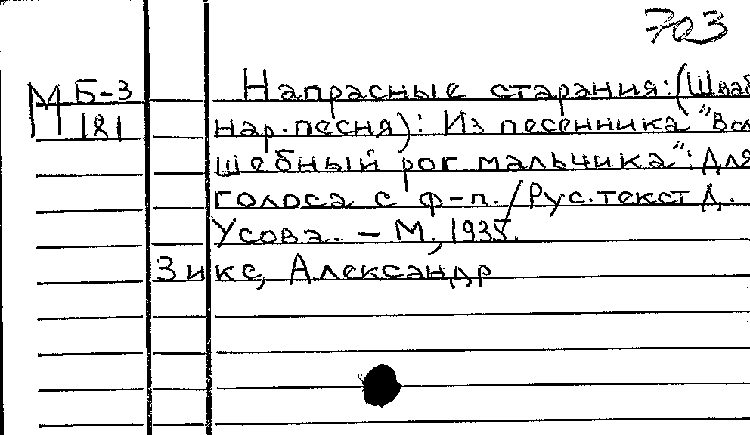 703
М Б-3
181
Напрасные старания: (Шваб
нар. песня): Из песенника "Вол
шебный рог мальчика": Для
голоса с ф-п. / Рус. текст Д.
Усова. - М., 1935.
Зикс, Александр